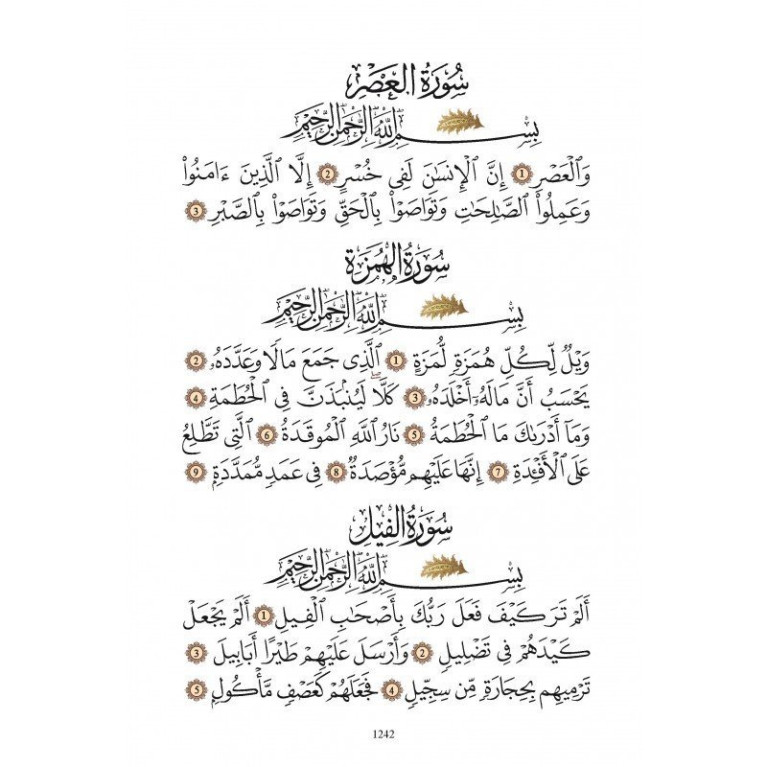 سُورَةُ العَصْرِ
بِسْمِ ٱللَّهِ ٱلرَّحْمَٰنِ ٱلرَّحِيمِ
وَٱلْعَصْرِ ١ إِنَّ ٱلْإِنسَٰنَ لَفِى خُسْرٍ ٢ إِلَّا ٱلَّذِينَ ءَامَنُوا۟
وَعَمِلُوا۟ ٱلصَّٰلِحَٰتِ وَتَوَاصَوْا۟ بِٱلْحَقِّ وَتَوَاصَوْا۟ بِٱلصَّبْرِ ٣
سُورَةُ الهُمَزَةِ
بِسْمِ ٱللَّهِ ٱلرَّحْمَٰنِ ٱلرَّحِيمِ
وَيْلٌ لِّكُلِّ هُمَزَةٍ لُّمَزَةٍ ١ ٱلَّذِى جَمَعَ مَالًا وَعَدَّدَهُۥ ٢
يَحْسَبُ أَنَّ مَالَهُۥٓ أَخْلَدَهُۥ ٣ كَلَّا ۖ لَيُنۢبَذَنَّ فِى ٱلْحُطَمَةِ ٤
وَمَآ أَدْرَىٰكَ مَا ٱلْحُطَمَةُ ٥ نَارُ ٱللَّهِ ٱلْمُوقَدَةُ ٦ ٱلَّتِى تَطَّلِعُ
عَلَى ٱلْأَفْـِٔدَةِ ٧ إِنَّهَا عَلَيْهِم مُّؤْصَدَةٌ ٨ فِى عَمَدٍ مُّمَدَّدَةٍۭ ٩
سُورَةُ الفِيلِ
بِسْمِ ٱللَّهِ ٱلرَّحْمَٰنِ ٱلرَّحِيمِ
أَلَمْ تَرَ كَيْفَ فَعَلَ رَبُّكَ بِأَصْحَٰبِ ٱلْفِيلِ ١ أَلَمْ يَجْعَلْ
كَيْدَهُمْ فِى تَضْلِيلٍ ٢ وَأَرْسَلَ عَلَيْهِمْ طَيْرًا أَبَابِيلَ ٣
تَرْمِيهِم بِحِجَارَةٍ مِّن سِجِّيلٍ ٤ فَجَعَلَهُمْ كَعَصْفٍ مَّأْكُولٍۭ ٥
1242